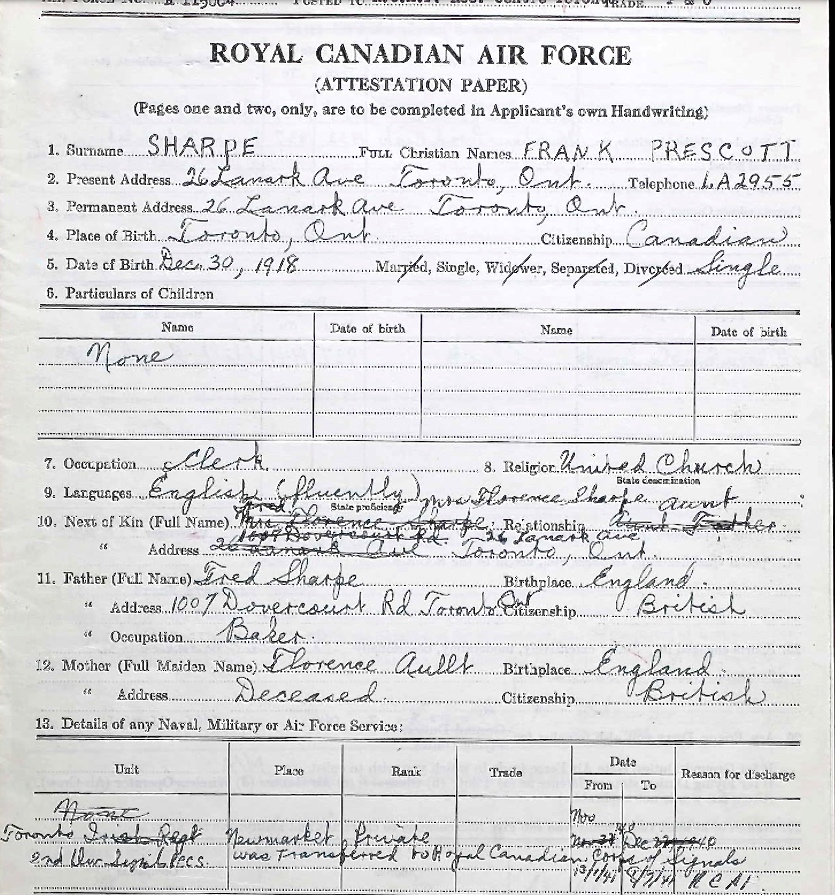 ROYAL CANADIAN AIR FORCE
(ATTESTATION PAPER)
(Pages one and two, only, are to be completed in Applicant's own Handwriting)
1. Surname SHARPE FULL Christian Names FRANK PRESCOTT
2. Present Address 26 Lanark Ave Toronto, Ont. Telephone LA2955
3. Permanent Address 26 Lanark Ave Toronto, Ont.
4. Place of Birth Toronto, Ont. Citizenship Canadian
5. Date of Birth Dec. 30, 1918 Married, Single, Widower, Separated, Divorced Single
6. Particulars of Children
Name Date of birth Name Date of birth
None
7. Occupation Clerk 8. Religion United Church
State denomination
9. Languages English (fluently) Mrs Florence Sharpe Aunt
State proficiency
10. Next of Kin (Full Name) Mrs. Florence Sharpe Relationship Aunt Father
1007 Dovercourt Rd. 26 Lanark Ave
" Address 26 Lanark Ave Toronto, Ont.
11. Father (Full Name) Fred Sharpe Birthplace England.
" Address 1007 Dovercourt Rd Toronto Ont Citizenship British
" Occupation Baker.
12. Mother (Full Maiden Name) Florence Aullt Birthplace England.
" Address Deceased. Citizenship British
13. Details of any Naval, Military or Air Force Service:
Unit Place Rank Trade Date Reason for discharge
From To
None Nov
Toronto Irish Regt Newmarket Private Dec 1940
was transferred to Royal Canadian Corps of Signals
2nd Div 13/1/41